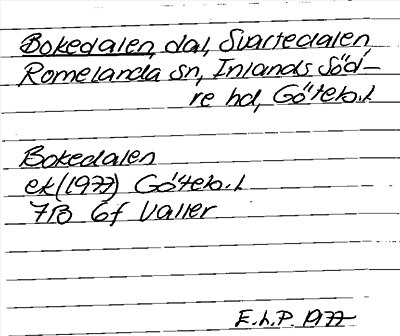 Bokedalen, dal, Svartedalen,
Romelanda sn, Inlands Söd-
re hd, Göteb.l.
Bokedalen
ek(1977) Göteb.l
7B 6f Valler
E.h.P. 1977